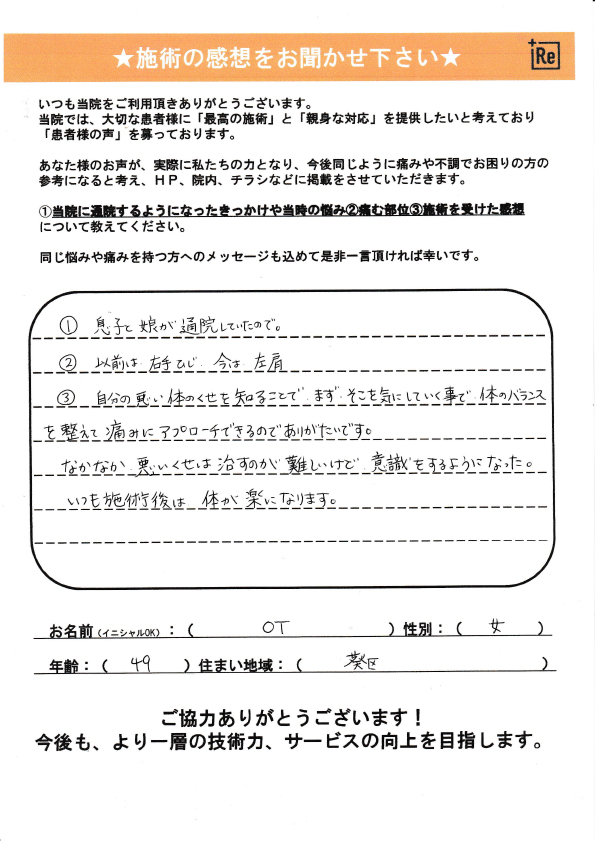 ★施術の感想をお聞かせ下さい★
+Re
いつも当院をご利用頂きありがとうございます。
当院では、大切な患者様に「最高の施術」と「親身な対応」を提供したいと考えており
「患者様の声」を募っております。
あなた様のお声が、実際に私たちの力となり、今後同じように痛みや不調でお困りの方の
参考になると考え、ＨＰ、院内、チラシなどに掲載をさせていただきます。
①当院に通院するようになったきっかけや当時の悩み②痛む部位③施術を受けた感想
について教えてください。
同じ悩みや痛みを持つ方へのメッセージも込めて是非一言頂ければ幸いです。
① 息子と娘が通院していたので。
② 以前は右手ひじ 今は左肩
③ 自分の悪い体のくせを知ることで まず そこを気にしていく事で 体のバランス
を整えて痛みにアプローチできるのでありがたいです。
なかなか悪いくせは治すのが難しいけど 意識をするようになった。
いつも施術後は 体が楽になります。
お名前（イニシャルOK）：（ OT ）性別：（ 女 ）
年齢：（ 49 ）住まい地域：（ 葵区 ）
ご協力ありがとうございます！
今後も、より一層の技術力、サービスの向上を目指します。